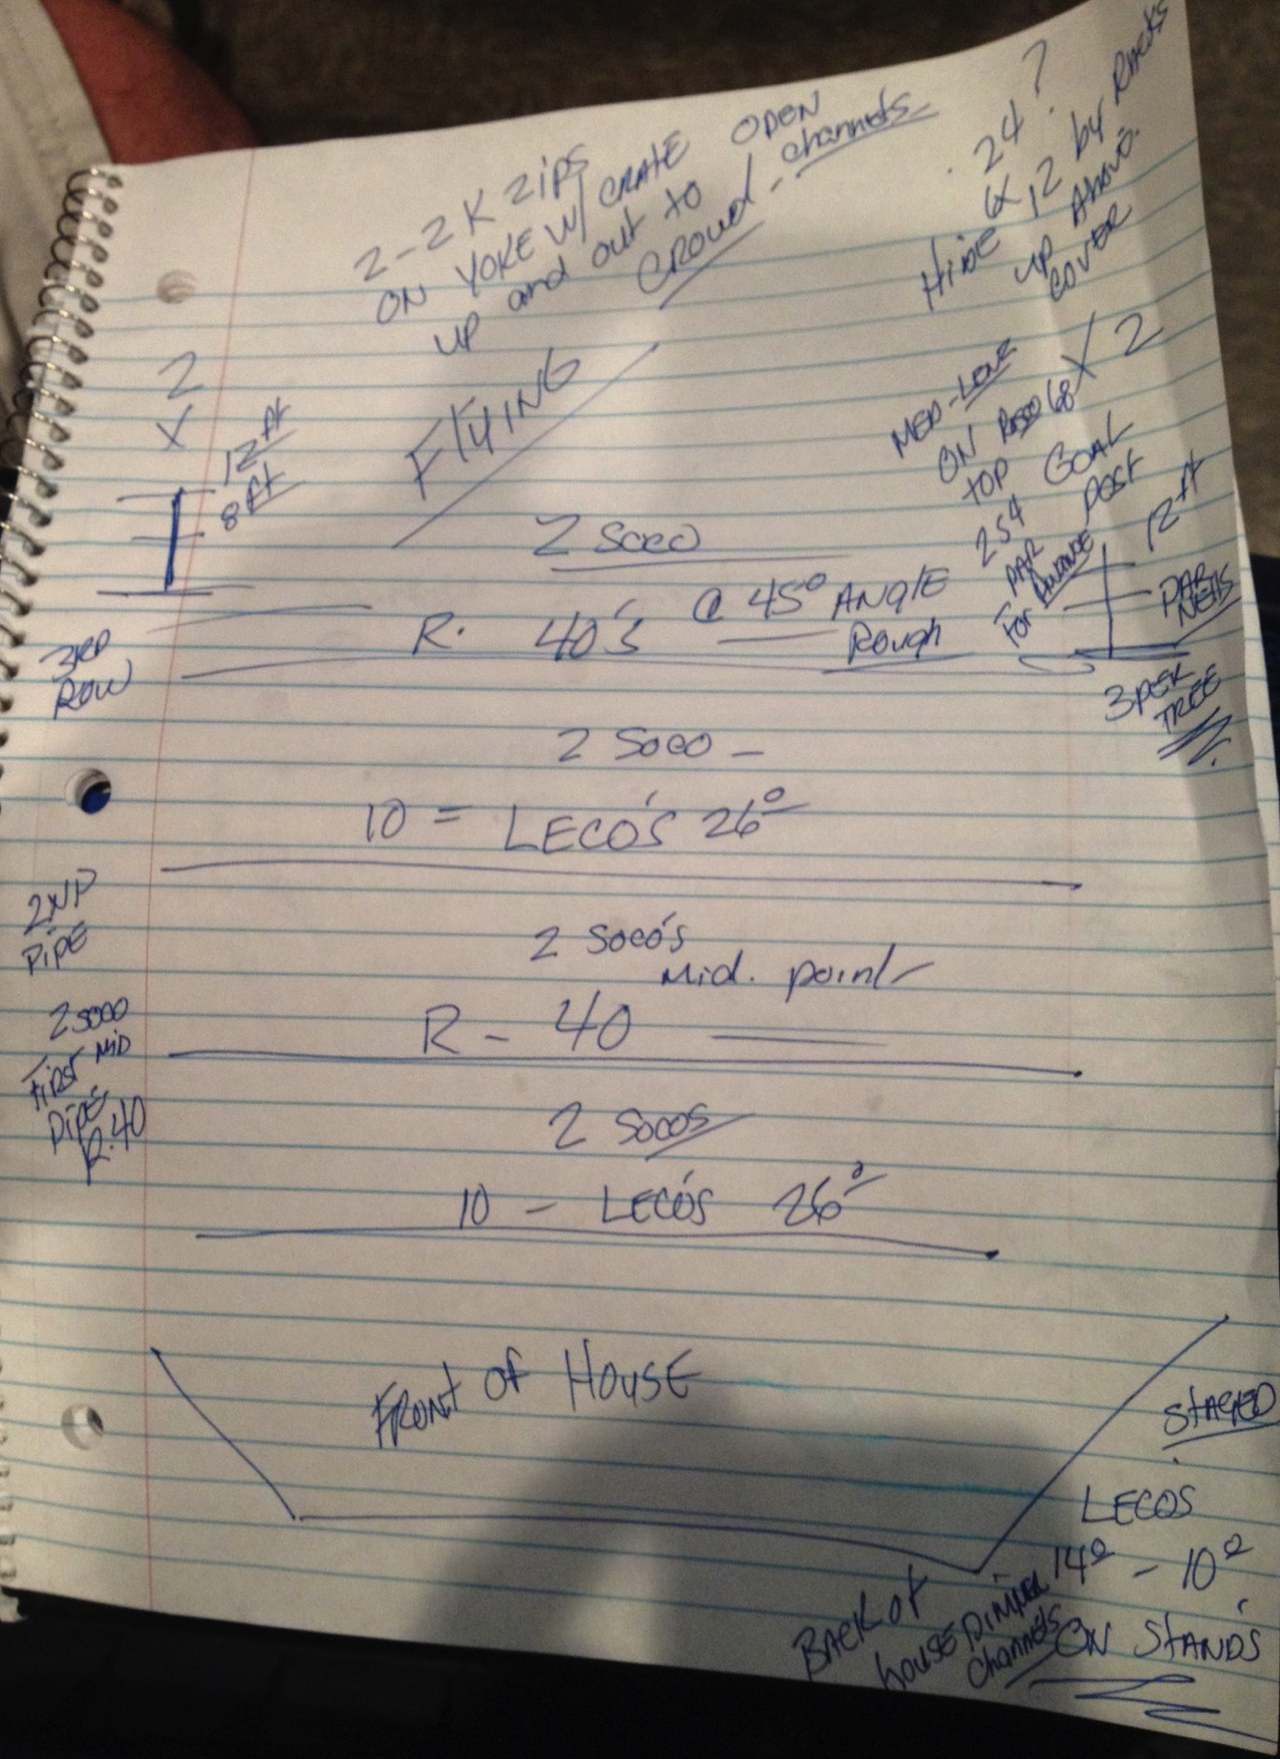 2-2K Zips
ON YOKE W/ CRATE OPEN
UP and out to
CROWD - channels
24?
6x12 by Racks
Hide up Above
COVER
2
X
12 ft
8 ft
FLYING
MED-LOVE X 2
ON Rosco 68
TOP GOAL
254 POST
PAR
For
12 ft
PAR
NELLS
3 PER
TREE
2 Soco
R. 40's @ 45° ANGLE
Rough
3RD
ROW
2 Soco -
10 = LECO'S 26°
2ND
PIPE
2 Soco's
Mid. point
R - 40
2 Soco
First MID
PIPE
R.40
2 Socos
10 - LECO'S 26°
FRONT of HOUSE
STAGED
LECOS
14° - 10°
ON STANDS
BACK of
house Dimmer
channels